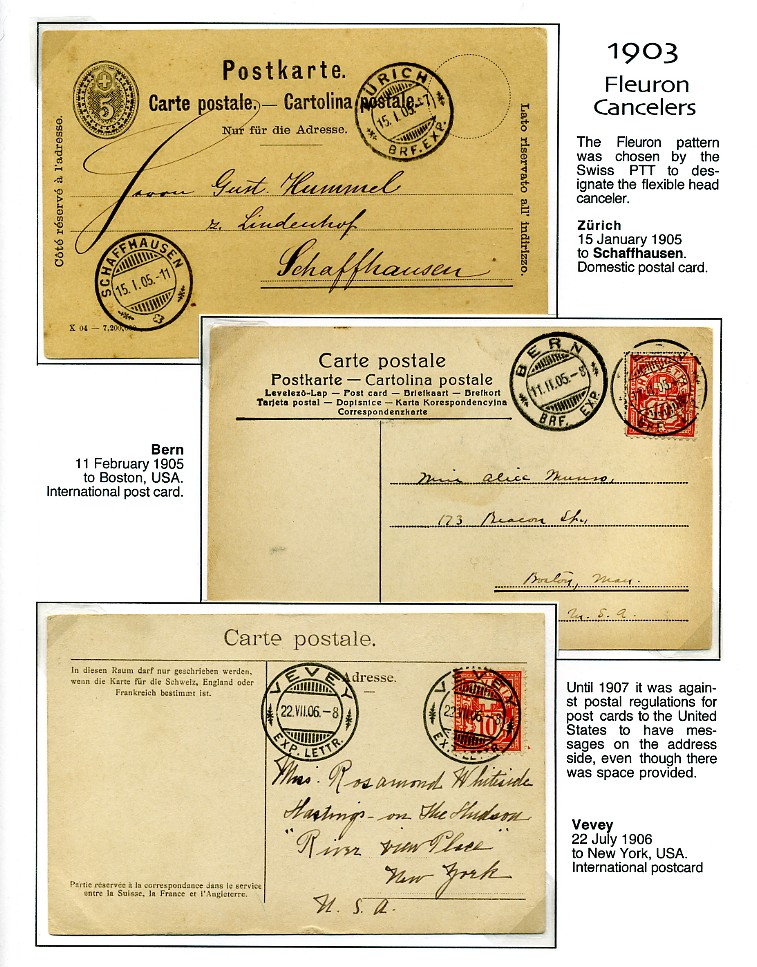 1903
Fleuron
Cancelers
The Fleuron pattern
was chosen by the
Swiss PTT to des-
ignate the flexible head
canceler.
Zürich
15 January 1905
to Schaffhausen.
Domestic postal card.
Postkarte.
Carte postale. — Cartolina postale.
Nur für die Adresse.
5
ZÜRICH
15.I.05.-7
BRF. EXP.
Côté réservé à l'adresse.
Lato riservato all' indirizzo.
Herrn Gust. Hummel
z. Lindenhof
Schaffhausen
SCHAFFHAUSEN
15.I.05.-11
X 04 — 7,200,000
Bern
11 February 1905
to Boston, USA.
International post card.
Carte postale
Postkarte — Cartolina postale
Levelező-Lap — Post card — Briefkaart — Brefkort
Tarjeta postal — Dopisnice — Karta Korespondencyjna
Correspondenzkarte
BERN
11.II.05.-8
BRF. EXP.
Miss Alice Munro,
173 Beacon St.,
Boston, Mass.
U. S. A.
Carte postale.
In diesen Raum darf nur geschrieben werden,
wenn die Karte für die Schweiz, England oder
Frankreich bestimmt ist.
Adresse.
VEVEY
22.VII.06.-8
EXP. LETTR.
VEVEY
22.VII.06.-8
EXP. LETTR.
10
Miss. Rosamond Whiteside
Hastings-on The Hudson
"River view Place"
New York
U. S. A.
Partie réservée à la correspondance dans le service
entre la Suisse, la France et l'Angleterre.
Until 1907 it was again-
st postal regulations for
post cards to the United
States to have mes-
sages on the address
side, even though there
was space provided.
Vevey
22 July 1906
to New York, USA.
International postcard